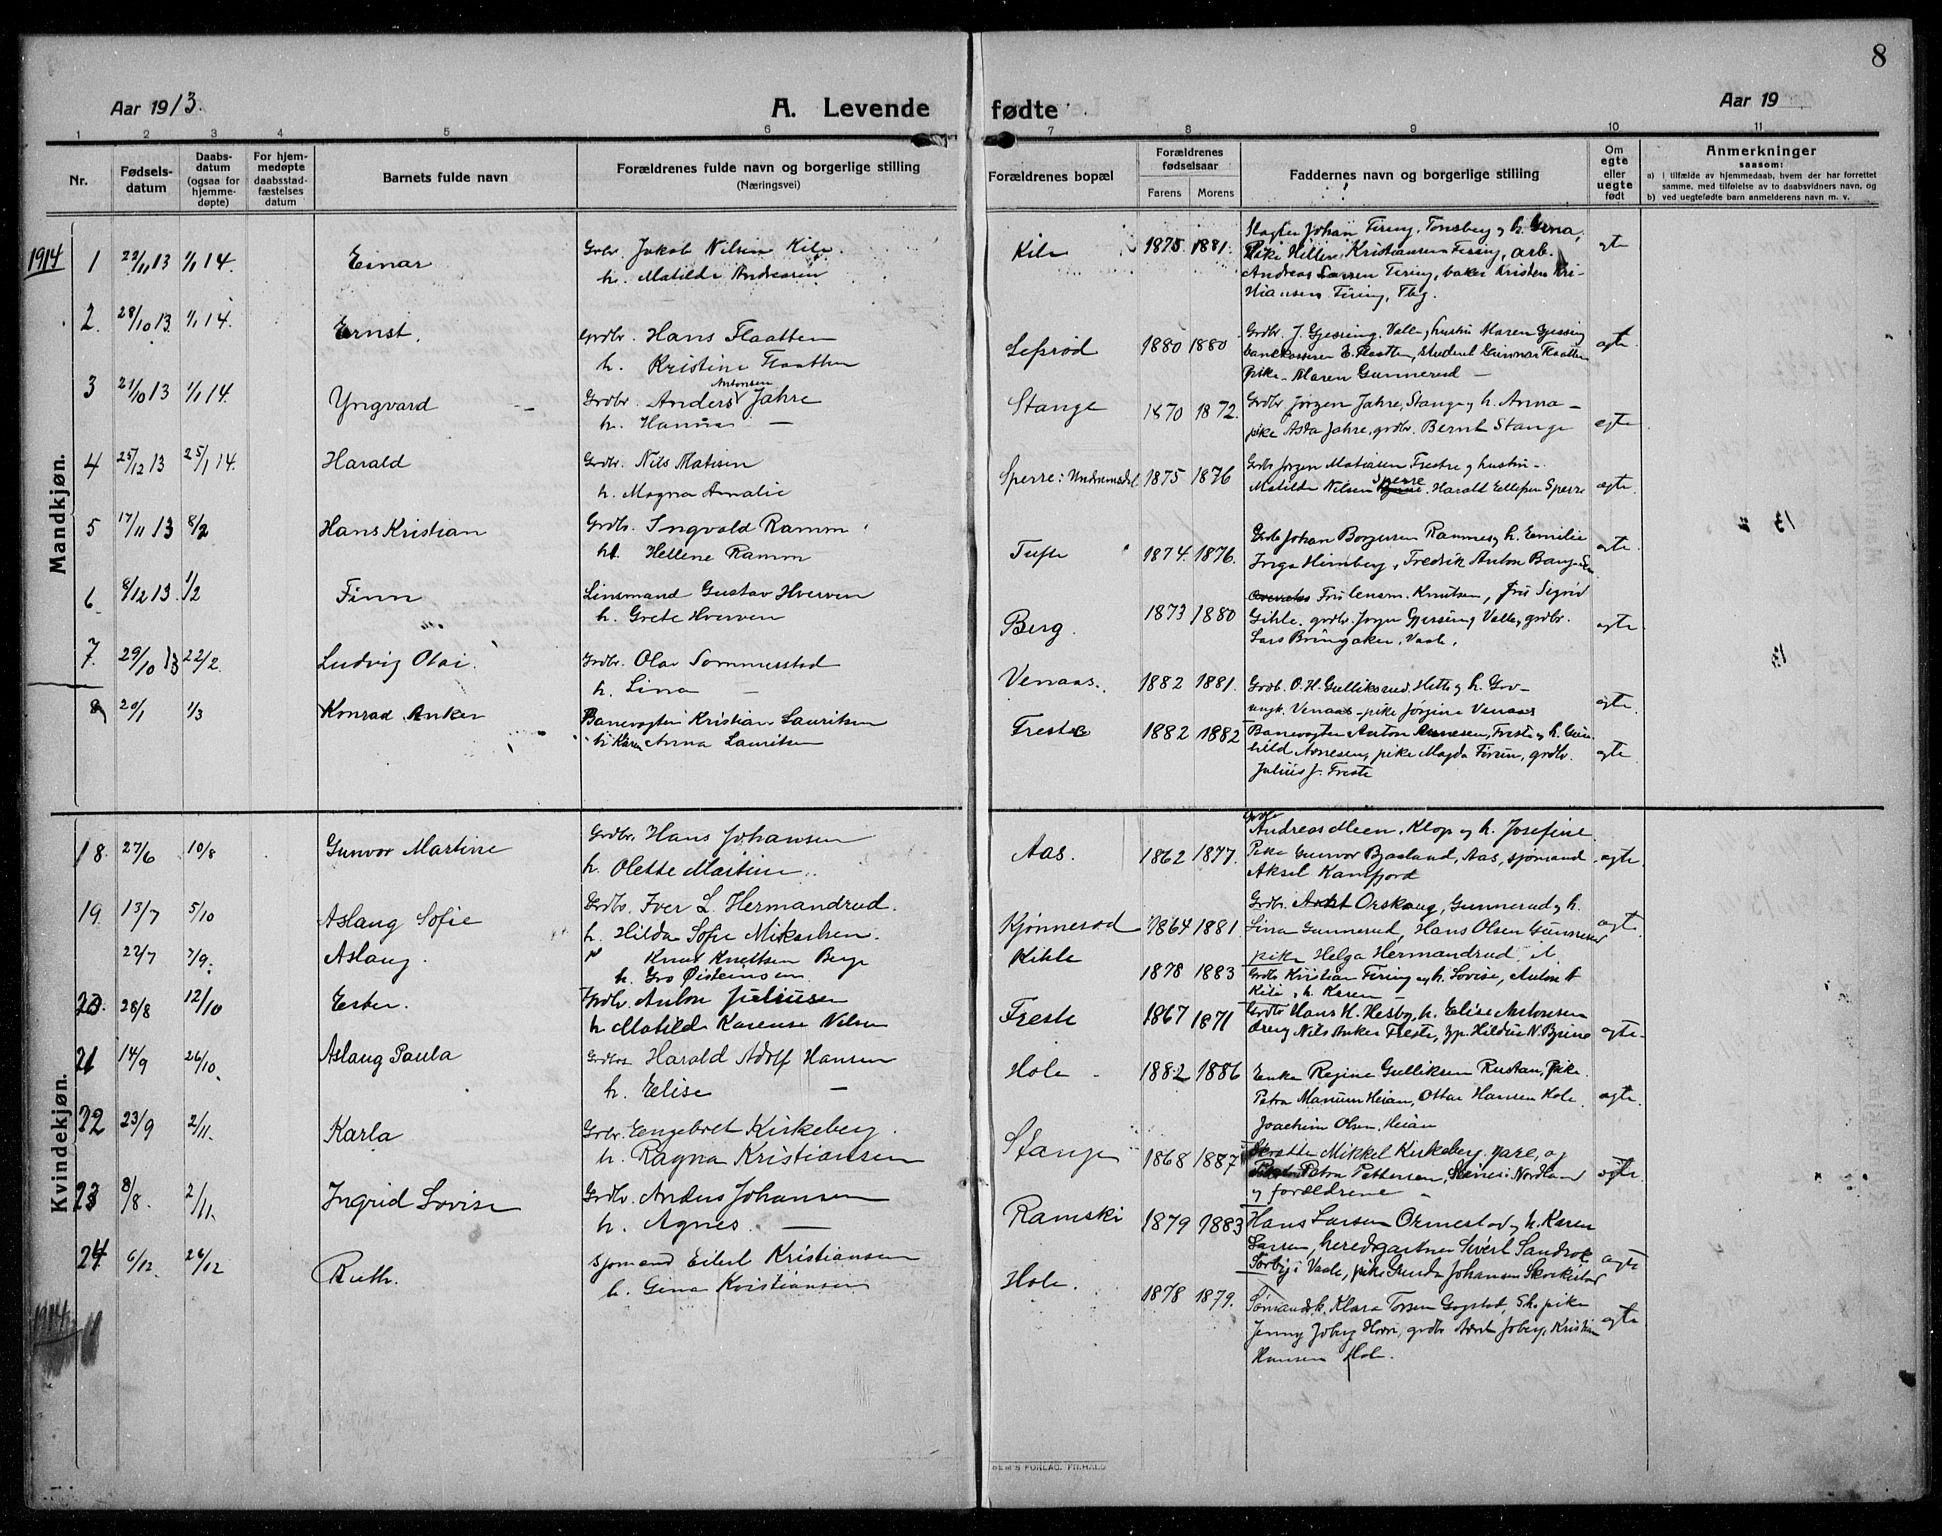 8
Aar 1913.
A. Levende fødte
Aar 19
1 2 3 4 5 6 7 8 9 10 11
Nr.
Fødsels-
datum
Daabs-
datum
(ogsaa for
hjemme-
døpte)
For hjem-
medøpte
daabsstad-
fæstelses
datum
Barnets fulde navn
Forældrenes fulde navn og borgerlige stilling
(Næringsvei)
Forældrenes bopæl
Forældrenes
fødselsaar
Farens Morens
Faddernes navn og borgerlige stilling
Om
egte
eller
uegte
født
Anmerkninger
saasom:
a) i tilfælde av hjemmedaab, hvem der har forrettet
samme, med tilføielse av to daabsvidners navn, og
b) ved uegtefødte barn anmelderens navn m. v.
Mandkjøn.
1914
1 22/11 13 1/1 14. Einar Grbr. Jakob Nilsen Kile
h. Matilde Andresen
Kile 1875 1881. egte
Slagter Johan Firing, Tønsberg og h. Gina,
Pike Kristiansen Firing, arb.
Andreas Larsen Firing, baker Kristen Kri-
stiansen Firing, Tbg.
2. 28/10 13 1/1 14. Ernst. Grdbr. Hans Flaatten
h. Kristine Flaatten
Lefsrød 1880 1880 egte
Grdbr. J. Gjessing, Valle, hustru Maren Gjessing
E. Flaatten, student Gunnar Flaatten
pike Maren Gunnerød –
3 21/10 13 1/1 14. Yngvard Grdbr. Anders Antonsen Jahre
h. Hanna —
Stange 1870 1872. egte
Grdbr Jørgen Jahre, Stange og h. Anna –
pike Asta Jahre, grdbr. Bernt Stange
4 25/12 13 25/1 14. Harald Grdbr. Nils Matisen
h. Magna Amalie
Sperre: Undrumsdal 1875 1876 egte.
Grdb Jørgen Matiasen Freste og hustru –
Matilde Nilsen Sperre, Harald Ellefsen Sperre
5 17/11 13 8/2 Hans Kristian Grdb. Ingvald Ramm
h. Hellene Ramm
Tufte 1874. 1876. egte
Grdb Johan Borgersen Rammes og h. Emilie
Inga Himberg, Fredrik Anton
6. 8/12 13. 1/2 Finn Linsmand Gustav Hverven
h. Grete Hverven
Berg. 1873 1880 egte.
Fru lensm. Knutsen, fru Sigrid
Gihle, grdbr. Jørgen Gjessing Valle, grdbr.
Lars Bringaker, Vaale.
7. 29/10 13 22/2. Ludvig Olai. Grdbr. Olav Sommerstad
h. Lina —
Venaas. 1882 1881. egte.
Grdb. O. H. Gulliksrud, Hette og h.
ungk. Venaas – pike Jørgine Venaas
8 20/1 1/3 Konrad Anker Banevogter Kristian Lauritsen
h. Karen Anna Lauritsen
Freste 1882 1882 egte
Banevogter Anton Arnesen, Freste og h. Gun-
hild Arnesen, pike Magda Firing, grdbr.
Julius J. Freste
Kvindekjøn.
18. 27/6 10/8 Gunvor Martine Grdbr. Hans Johansen
h. Olette Martine
Aas. 1862 1877. egte.
Grdb Andreas Meen, Klop og h. Josefine
Pike Gunvor Bjaaland, Aas, sjømand
Aksel Kamfjord
19. 13/7 5/10 Aslaug Sofie Grdbr. Iver L. Hermandrud.
h. Hilda Sofie Mikaelsen.
Kjønnerød 1864 1881. egte.
Grdbr. Orskaug, Gunnerud og h.
Lina Gunnerud, Hans Olsen Gunnerud
pike Helga Hermandrud
22/7 7/9. Aslaug. Knut Knutsen Berge
h. Gro Øisteinsen
Kihle 1878 1883
Grdb Kristian Firing og h. Lovise, Anton A
Kile, h. Karen –
20. 28/8 12/10 Ester. Grdbr. Anton Juliusen
h Matilde Karense Nilsen
Freste 1867 1871 egte.
Grdb Hans H. Hesby, h. Elise Antonsen
Nils Anker Freste, Hildur N. Bjune
21 14/9 26/10. Aslaug Paula Harald Adolf Hansen
h. Elise —
Hole 1882 1886 egte.
Enke Regine Gulliksen Rustan, Pike
Petra Heian, Ottar Hansen Hole
Joachim Olsen, Heian
22 23/9 2/11. Karla Grbr. Engebret Kirkeberg.
h. Ragna Kristiansen
Stange 1868 1887 egte.
Mikkel Kirkeberg, og
Petra Pettersen, Nordland
og forældrene
23 8/8. 2/11. Ingrid Lovise Grdbr. Anders Johansen
h. Agnes. —
Ramski 1879 1883 egte
Hans Larsen Ormestad og h. Karen
Larsen, heredsgartner Sivert Sandvok
Sørby i Vaale, pike Gunda Johansen
24 6/12. 26/12 Ruth. Sjømand Eilert Kristiansen
h. Gina Kristiansen
Hole. 1878 1879. egte
Sømandsk. Klara Torsen Gogstad, Sh. pike
Jenny Joberg Hovn, grdbr Joberg, Kristian
Hansen Hole.
1914
SEM'S FORLAG. FR.HALD